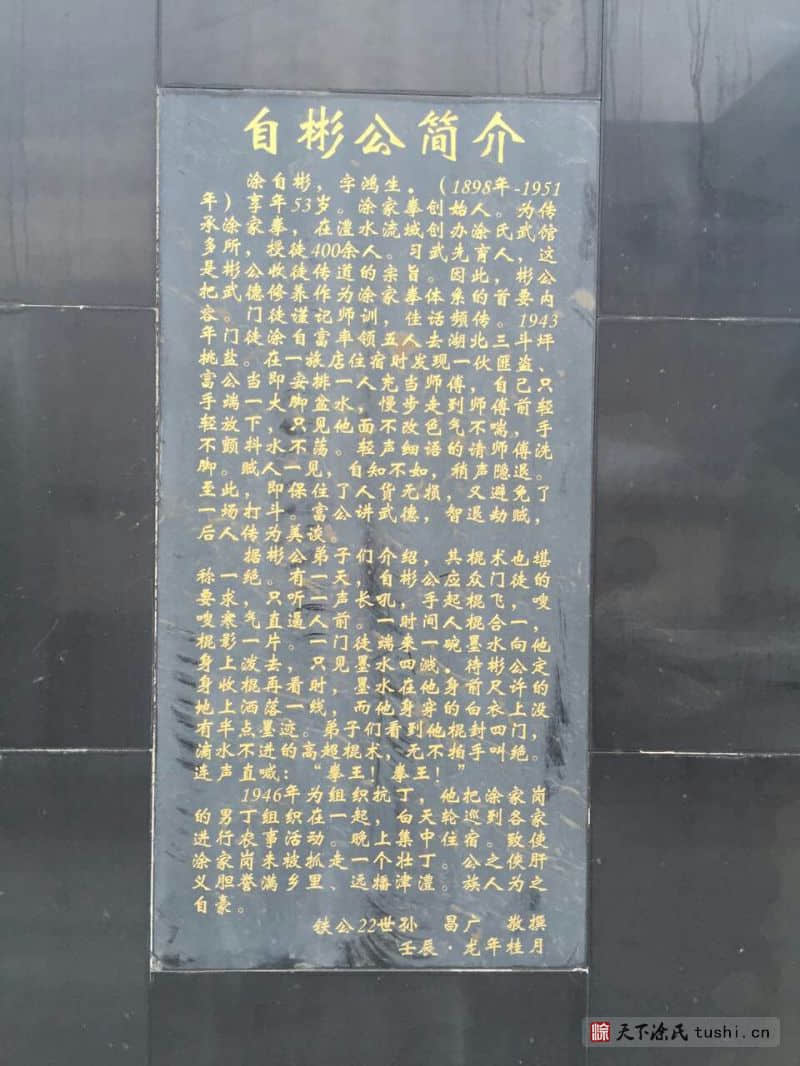 自彬公简介
涂自彬，字鸿生。（1898年-1951
年）享年53岁。涂家拳创始人。为传
承涂家拳，在澧水流域创办涂氏武馆
多所，授徒400余人。习武先育人，这
是彬公收徒传道的宗旨。因此，彬公
把武德修养作为涂家拳体系的首要内
容。门徒谨记师训，佳话频传。1943
年门徒涂自富率领五人去湖北三斗坪
挑盐。在一旅店住宿时发现一伙匪盗、
富公当即安排一人充当师傅，自己只
手端一大脚盆水，慢步走到师傅前轻
轻放下，只见他面不改色气不喘。手
不颤抖水不荡。轻声细语的请师傅洗
脚。贼人一见，自知不如，稍声隐退。
至此，即保住了人货无损，又避免了
一场打斗。富公讲武德，智退劫贼，
后人传为美谈。
据彬公弟子们介绍，其棍术也堪
称一绝。有一天，自彬公应众门徒的
要求，只听一声长吼，手起棍飞，嗖
嗖寒气直逼人前。一时间人棍合一，
棍影一片。一门徒端来一碗墨水向他
身上泼去，只见墨水四溅。待彬公定
身收棍再看时，墨水在他身前尺许的
地上洒落一线，而他身穿的白衣上没
有半点墨迹。弟子们看到他棍封四门，
滴水不进的高超棍术，无不拍手叫绝。
连声直喊：“拳王！拳王！”
1946年为组织抗丁，他把涂家岗
的男丁组织在一起，白天轮巡到各家
进行农事活动。晚上集中住宿。致使
涂家岗未被抓走一个壮丁。公之侠肝
义胆誉满乡里、远播津澧。族人为之
自豪。
铁公22世孙 昌广 敬撰
壬辰·龙年桂月
天下涂氏tushi.cn